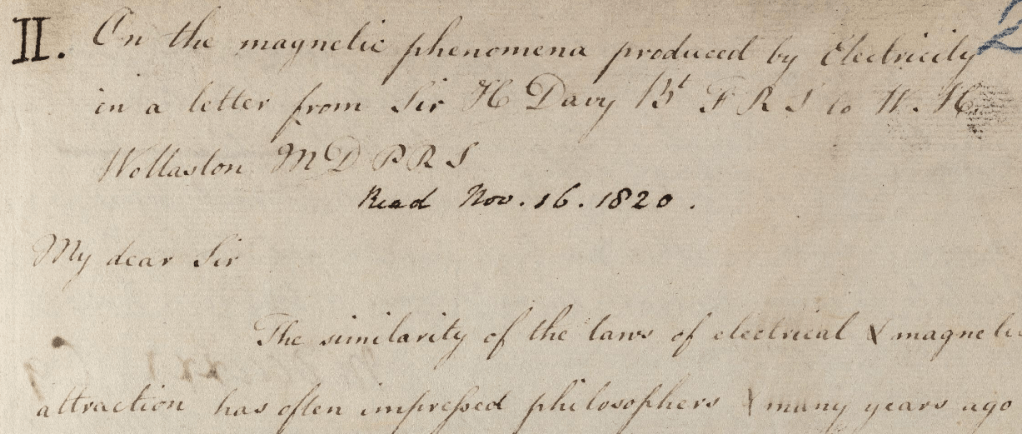 II. On the magnetic phenomena produced by Electricity
in a letter from Sir H Davy Bt F R S to W. H.
Wollaston M D P R S
Read Nov. 16. 1820.
My dear Sir
The similarity of the laws of electrical & magnetic
attraction has often impreſsed philosophers & many years ago